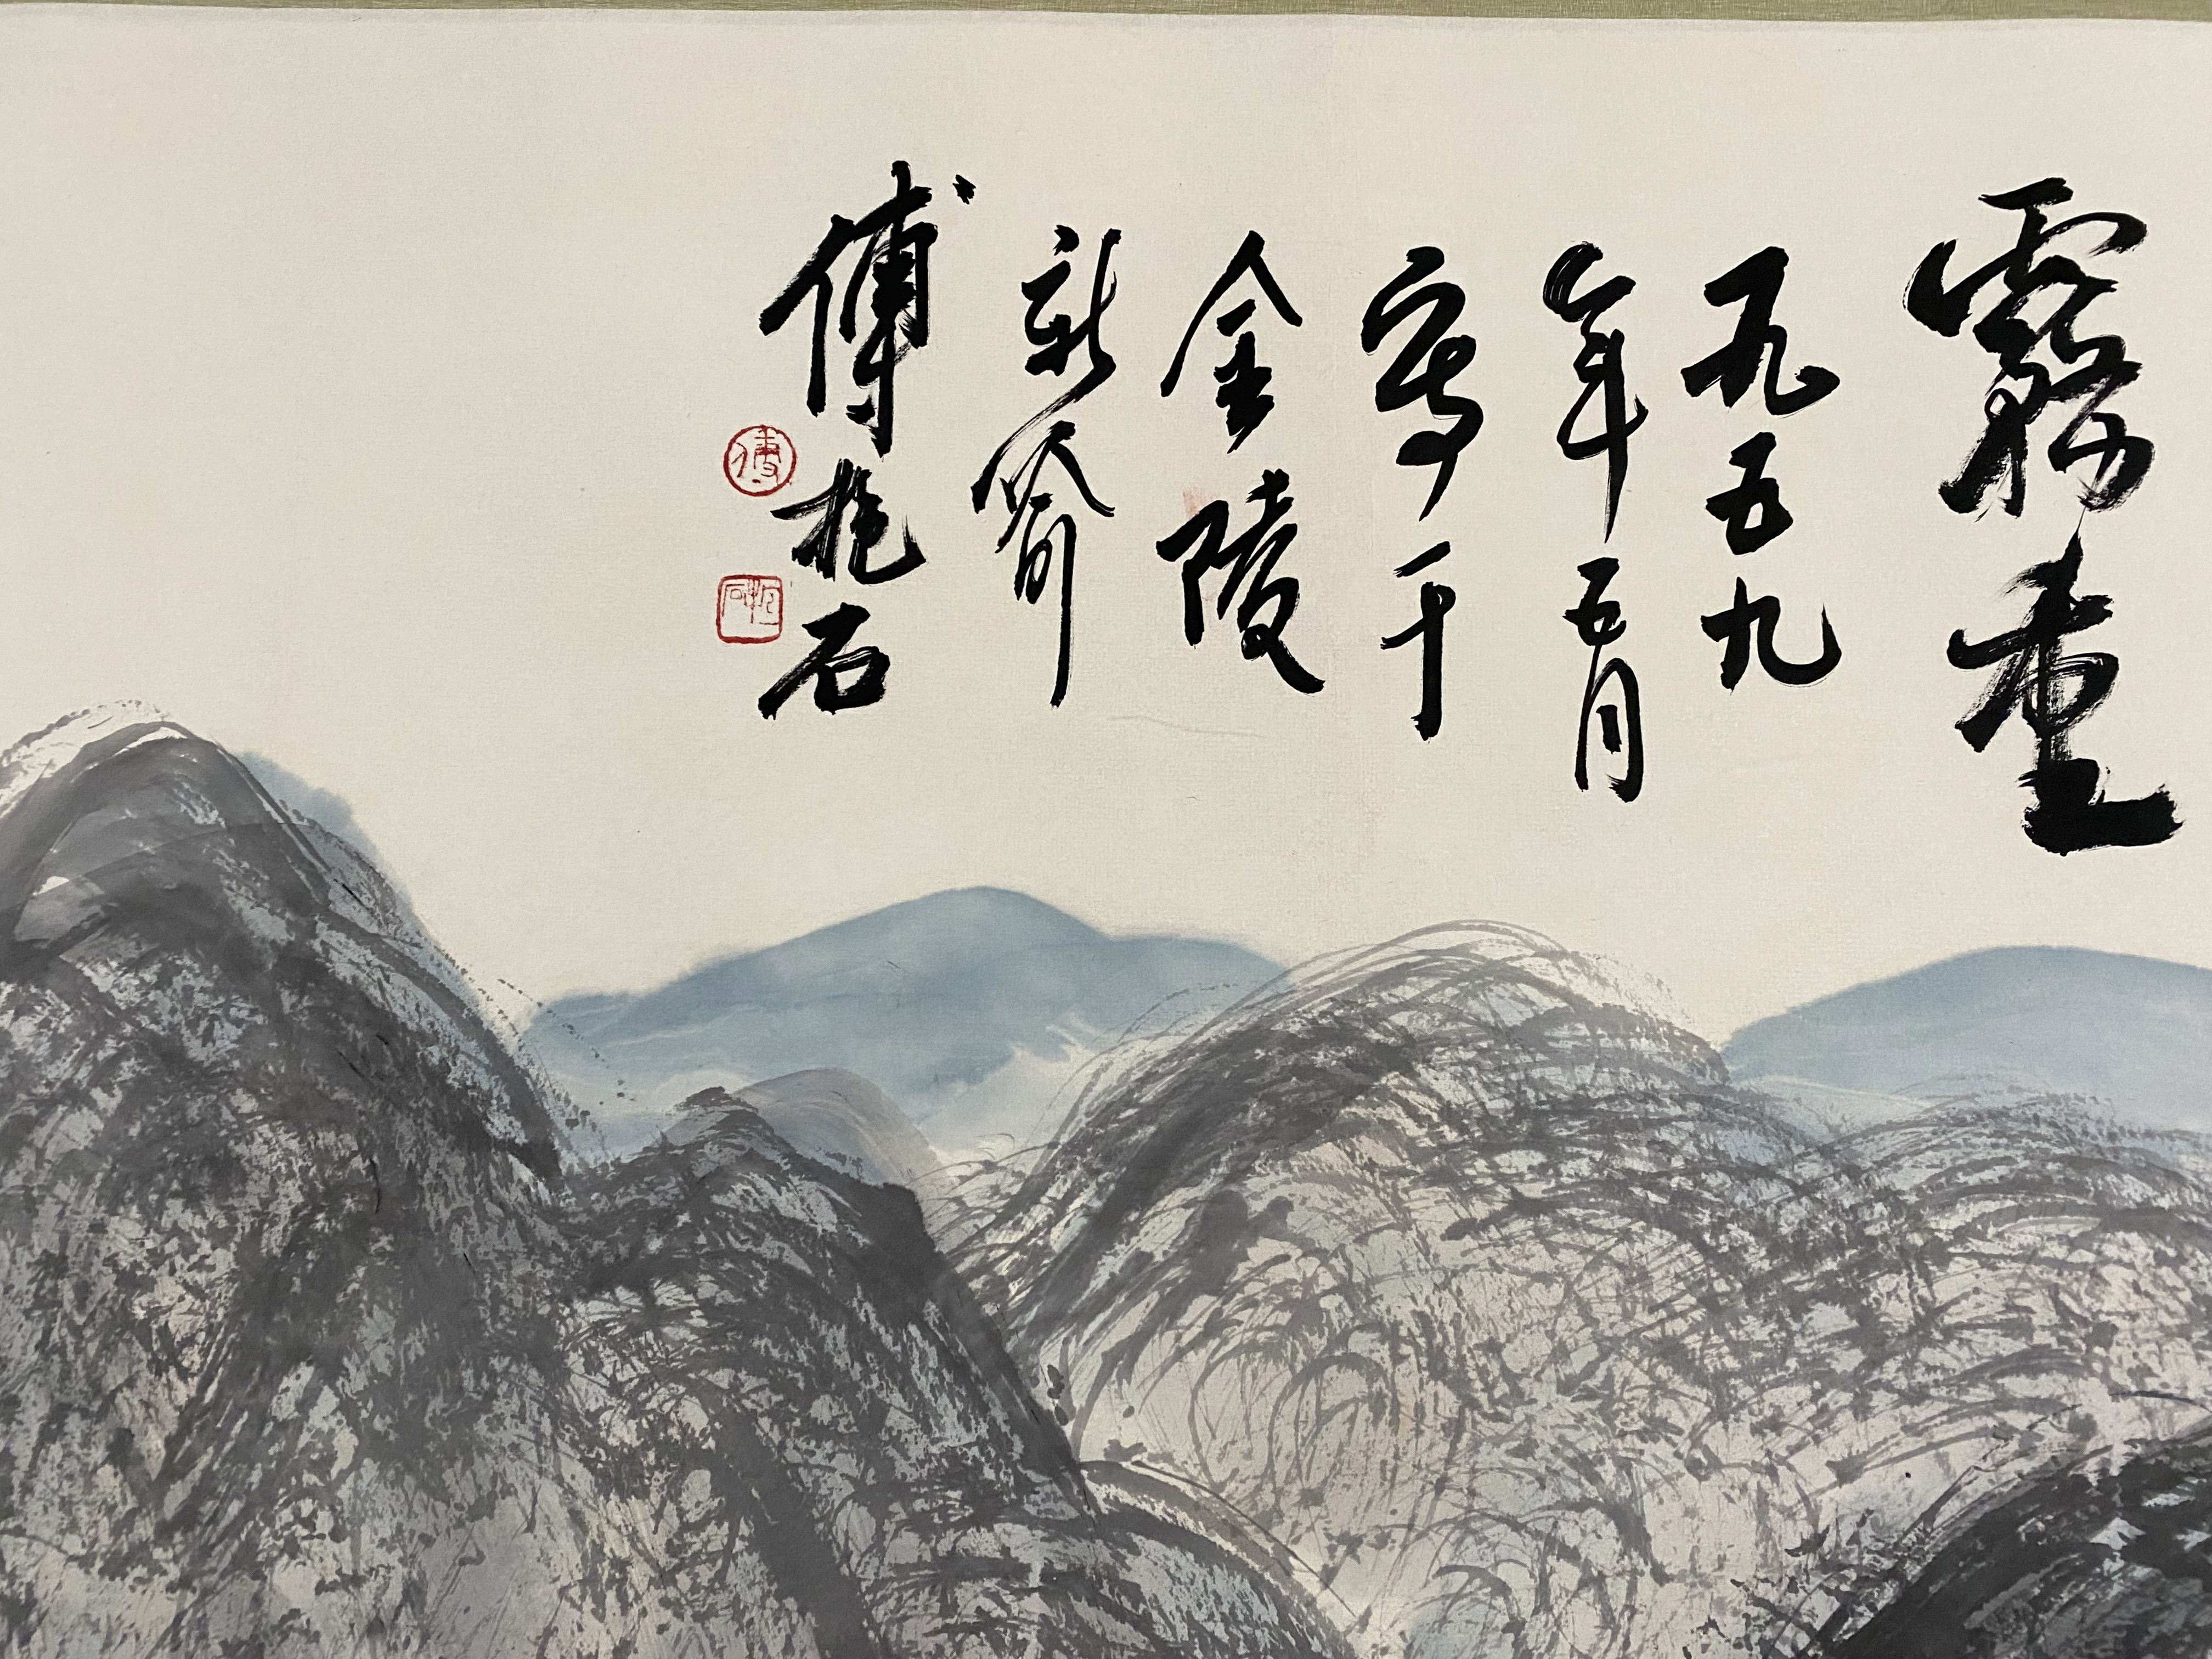 霧重
一九五九
年五月
寫于
金陵
新喻
傅抱石
傅
抱石